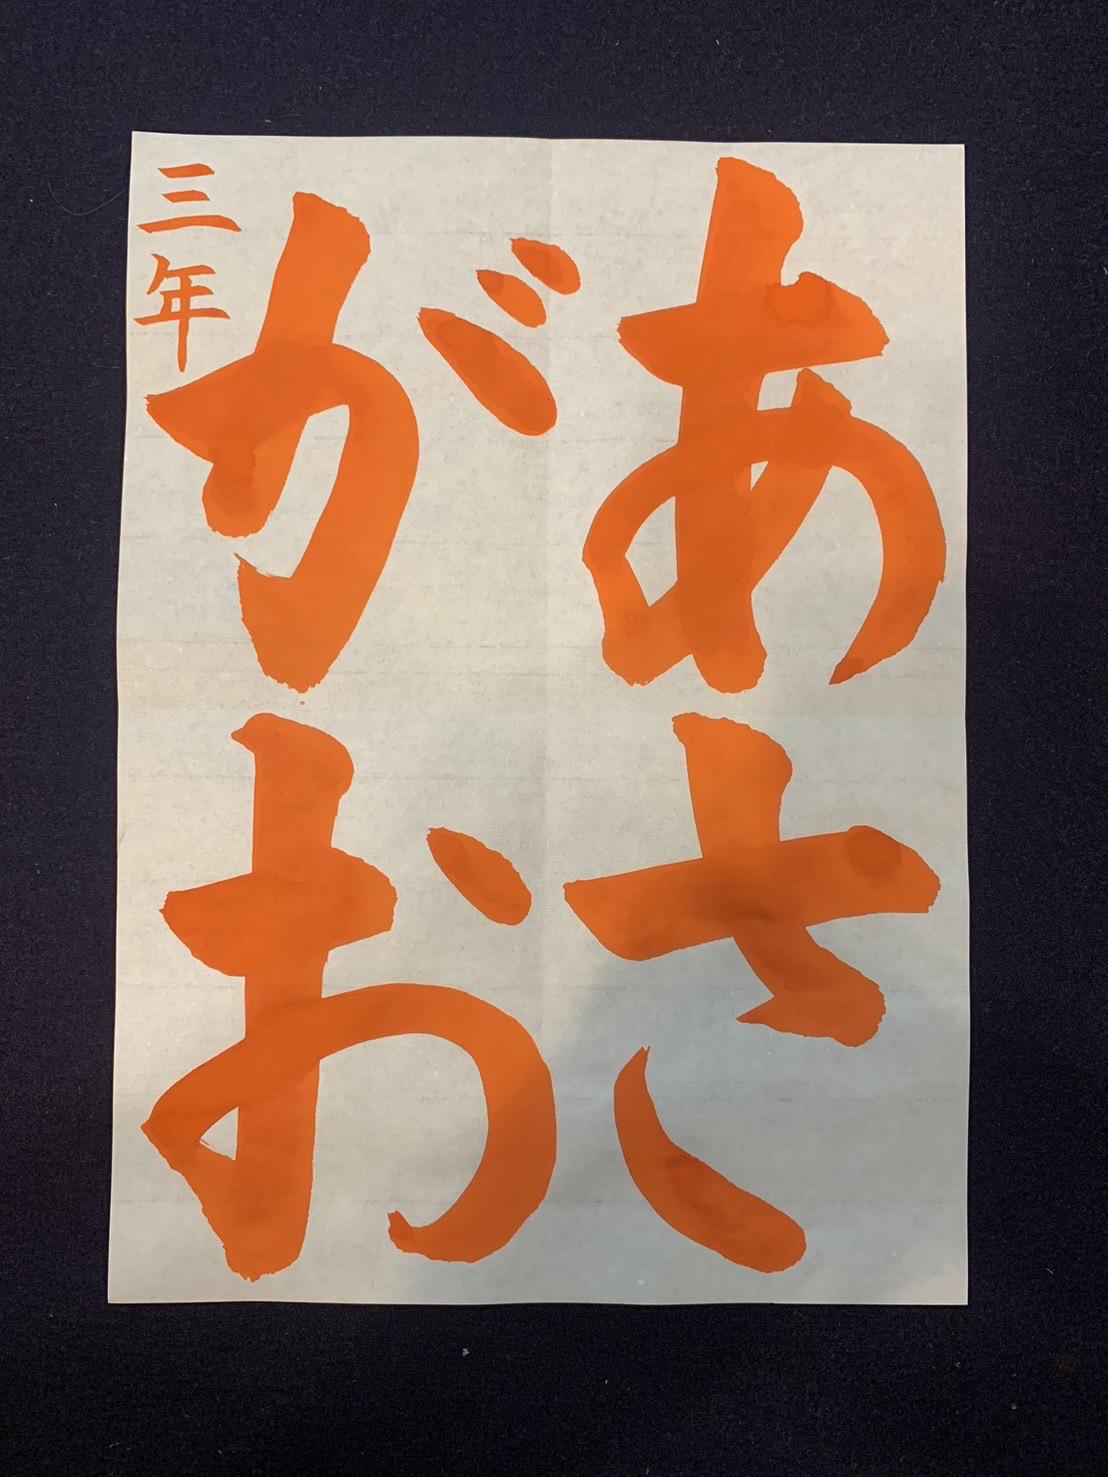 あさ
がお
三年